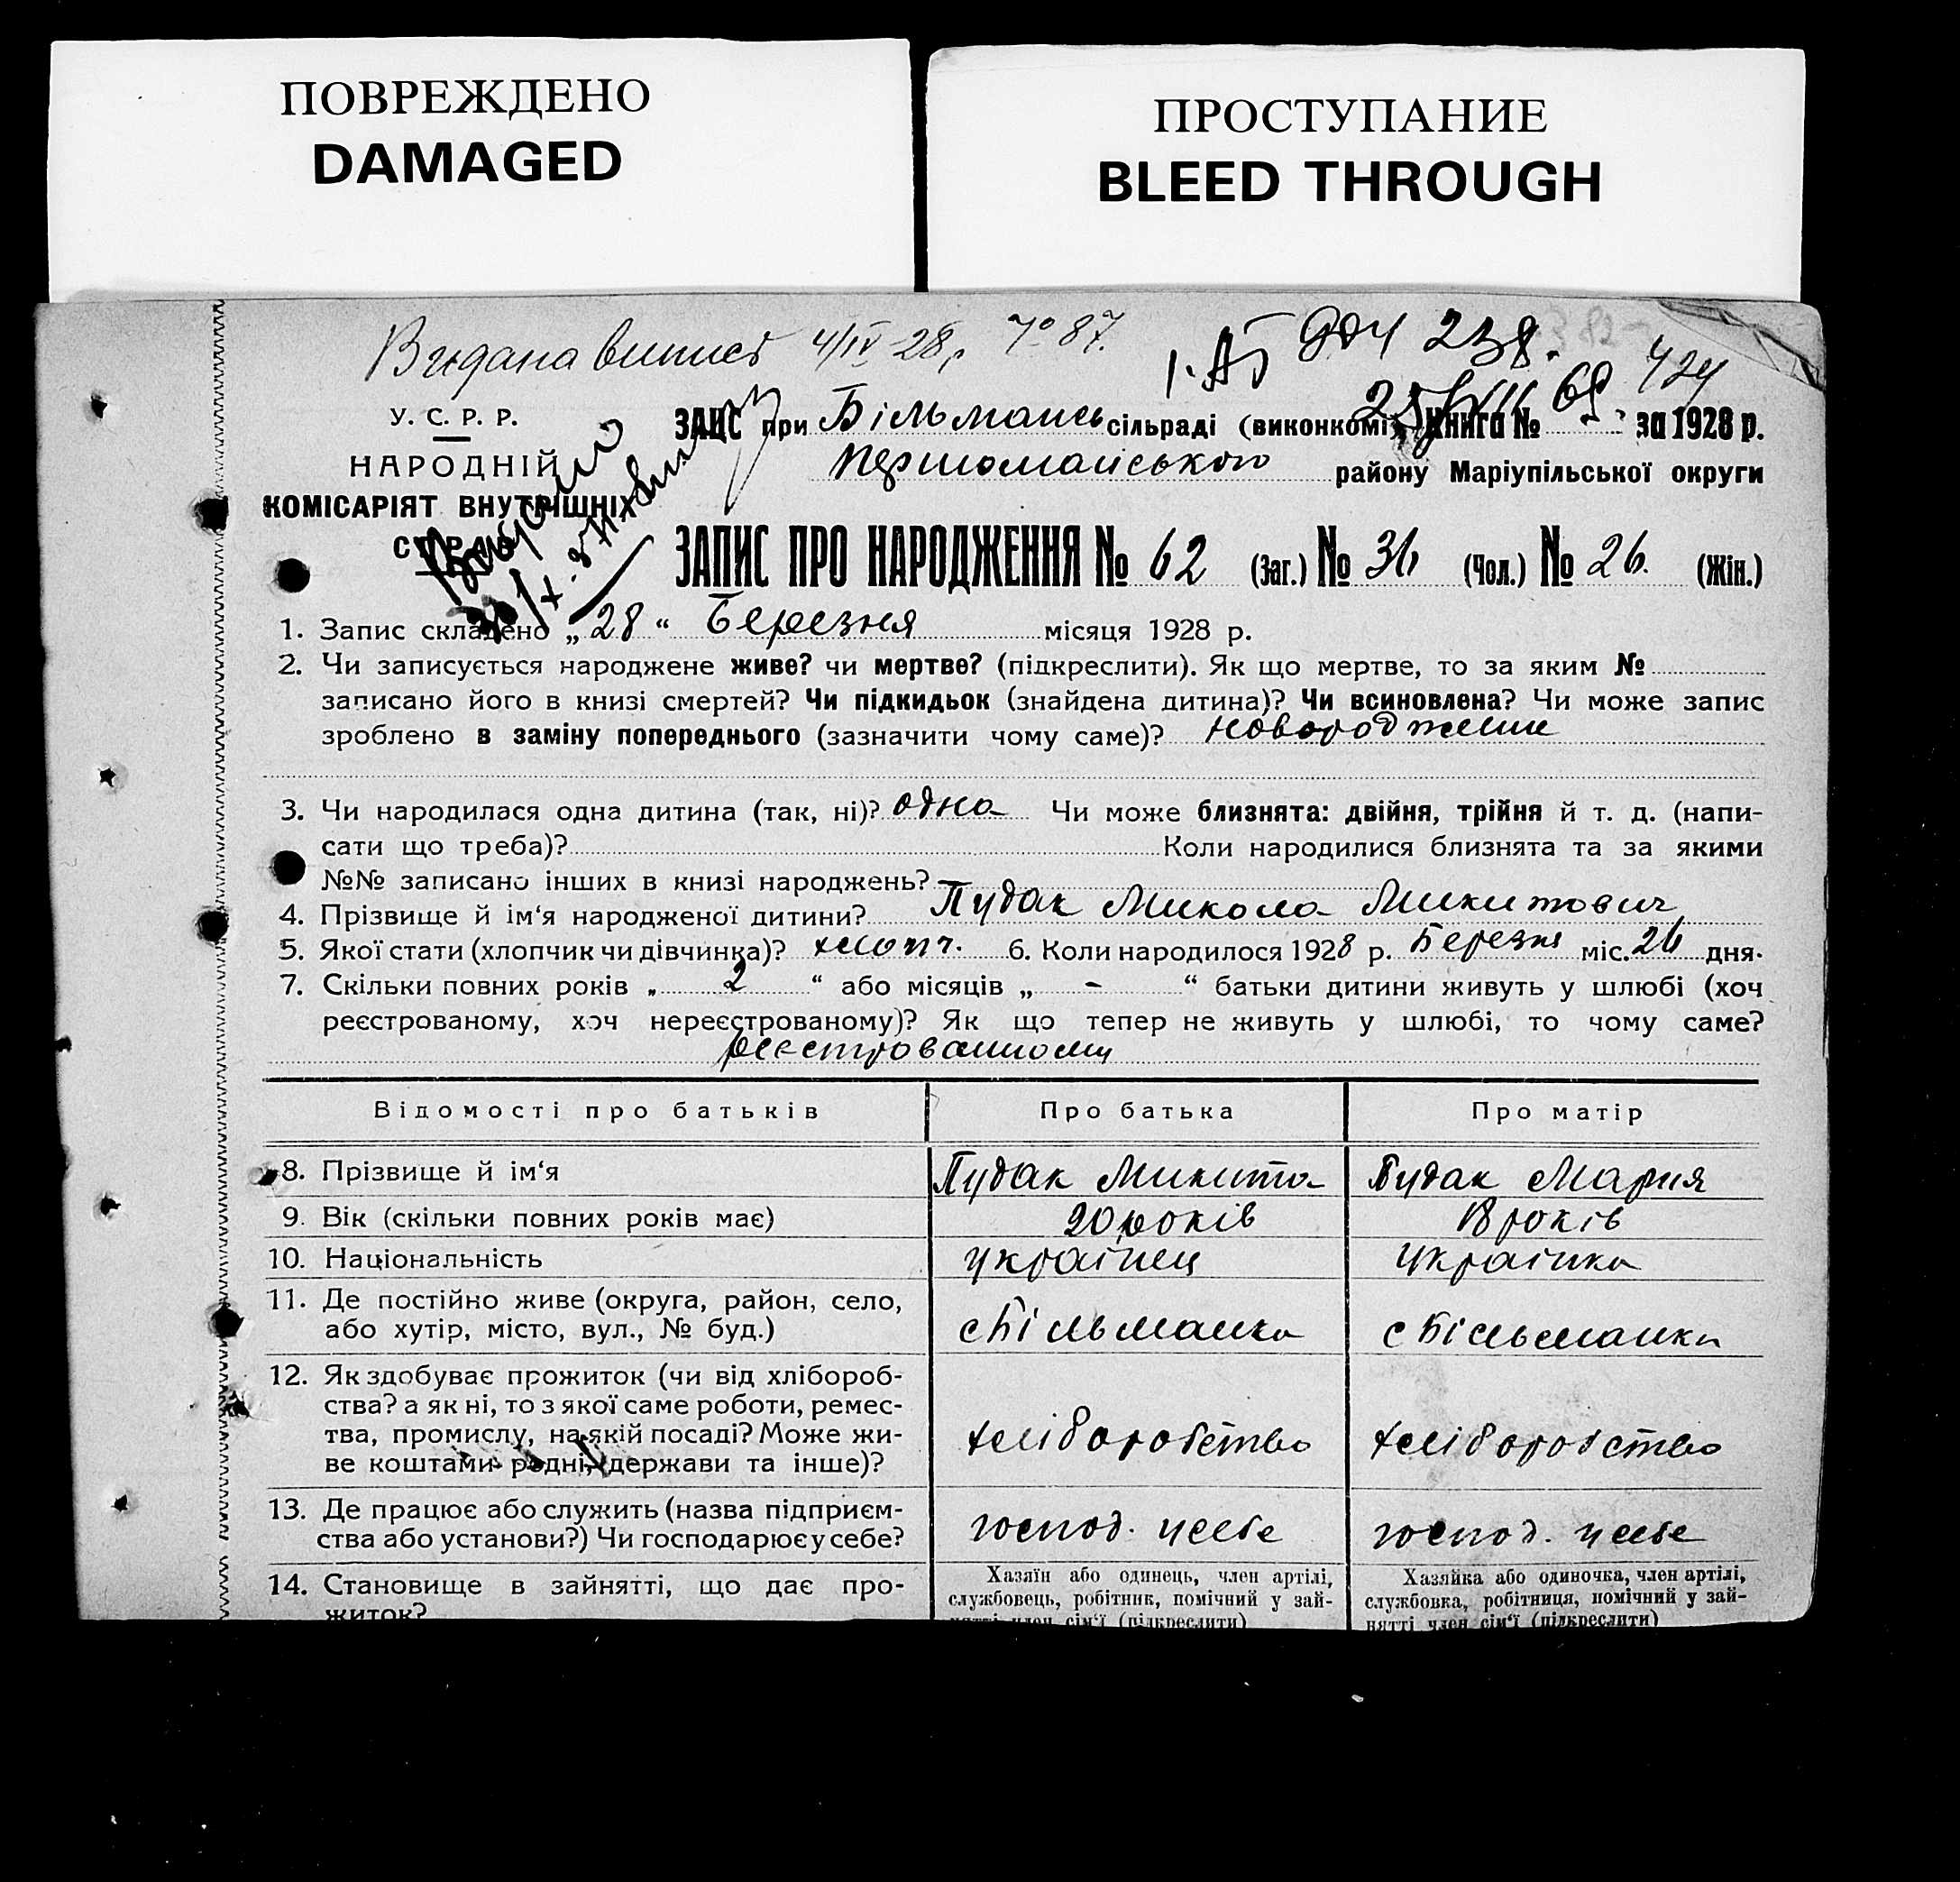 ПОВРЕЖДЕНО
DAMAGED
ПРОСТУПАНИЕ
BLEED THROUGH
Видана випись 4/IV 28 р. № 87.
I-АЪ 238.
424
У. С. Р. Р.
НАРОДНІЙ
КОМІСАРІЯТ ВНУТРІШНІХ
СПРАВ
ЗАГС при Більмансь сільраді (виконкомі) Книга № за 1928 р.
Першомайського району Маріупільської округи
ЗАПИС ПРО НАРОДЖЕННЯ № 62 (Заг.) № 36 (Чол.) № 26. (Жін.)
1. Запис складено „28“ Березня місяця 1928 р.
2. Чи записується народжене живе? чи мертве? (підкреслити). Як що мертве, то за яким №
записано його в книзі смертей? Чи підкидьок (знайдена дитина)? Чи всиновлена? Чи може запис
зроблено в заміну попереднього (зазначити чому саме)?
3. Чи народилася одна дитина (так, ні)? одна Чи може близнята: двійня, трійня й т. д. (напи-
сати що треба)? Коли народилися близнята та за якими
№№ записано інших в книзі народжень?
4. Прізвище й ім‘я народженої дитини? Пудак Микола Микитович
5. Якої стати (хлопчик чи дівчинка)? хлопч. 6. Коли народилося 1928 р. Березня міс. 26 дня.
7. Скільки повних років „ 2 “ або місяців „ - “ батьки дитини живуть у шлюбі (хоч
реєстрованому, хоч нереєстрованому)? Як що тепер не живуть у шлюбі, то чому саме?
реєстрованному
Відомості про батьків Про батька Про матір
8. Прізвище й ім‘я Пудак Микита Пудак Мария
9. Вік (скільки повних років має) 20 років 18 років
10. Національність українец українка
11. Де постійно живе (округа, район, село,
або хутір, місто, вул., № буд.) с Більманка с Більманка
12. Як здобуває прожиток (чи від хлібороб-
ства? а як ні, то з якої саме роботи, ремес-
тва, промислу, на якій посаді? Може жи-
ве коштами родні, держави та інше)? хліборобство хліборобство
13. Де працює або служить (назва підприєм-
ства або установи?) Чи господарює у себе? господ. у себе господ. у себе
14. Становище в зайнятті, що дає про-
житок?
Хазяїн або одинець, член артілі,
службовець, робітник, помічний у зай-
нятті член сім‘ї (підкреслити)
Хазяйка або одиночка, член артілі,
службовка, робітниця, помічний у зай-
нятті член сім‘ї (підкреслити)